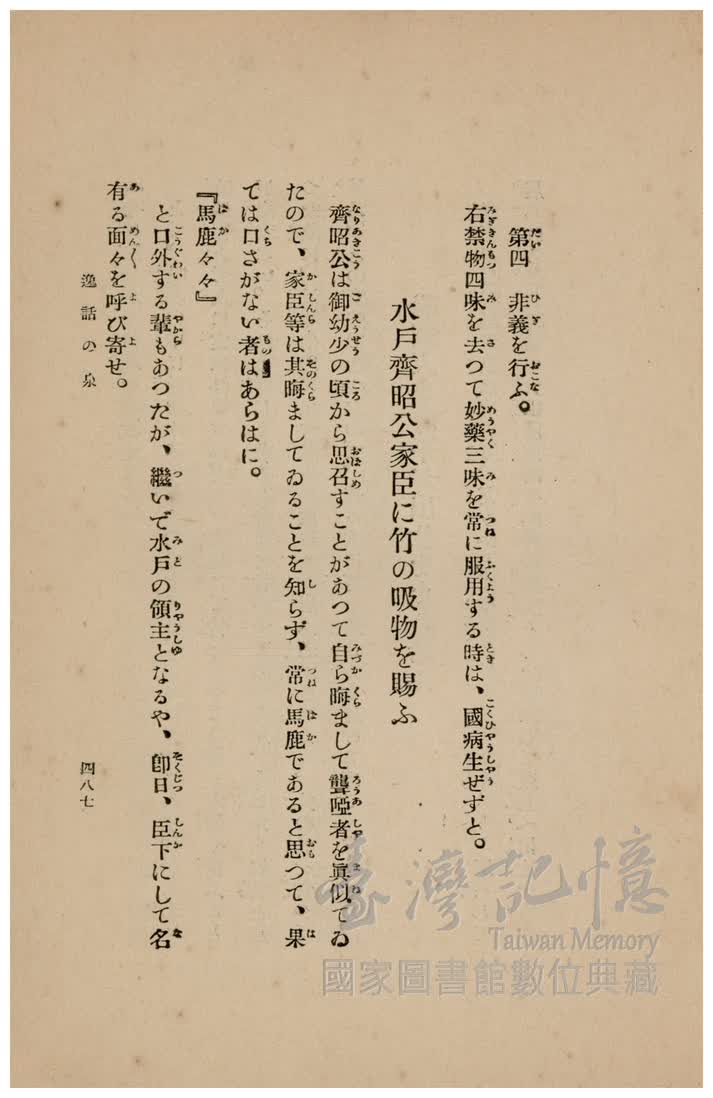 第四　非義を行ふ。
右禁物四味を去つて妙藥三味を常に服用する時は、國病生ぜずと。
水戸齊昭公家臣に竹の吸物を賜ふ
齊昭公は御幼少の頃から思召すことがあつて自ら晦まして聾啞者を眞似てゐ
たので、家臣等は其晦ましてゐることを知らず、常に馬鹿であると思つて、果
ては口さがない者はあらはに。
『馬鹿々々』
と口外する輩もあつたが、繼いで水戸の領主となるや、卽日、臣下にして名
有る面々を呼び寄せ。
逸話の泉
四八七
臺灣記憶
Taiwan Memory
國家圖書館數位典藏